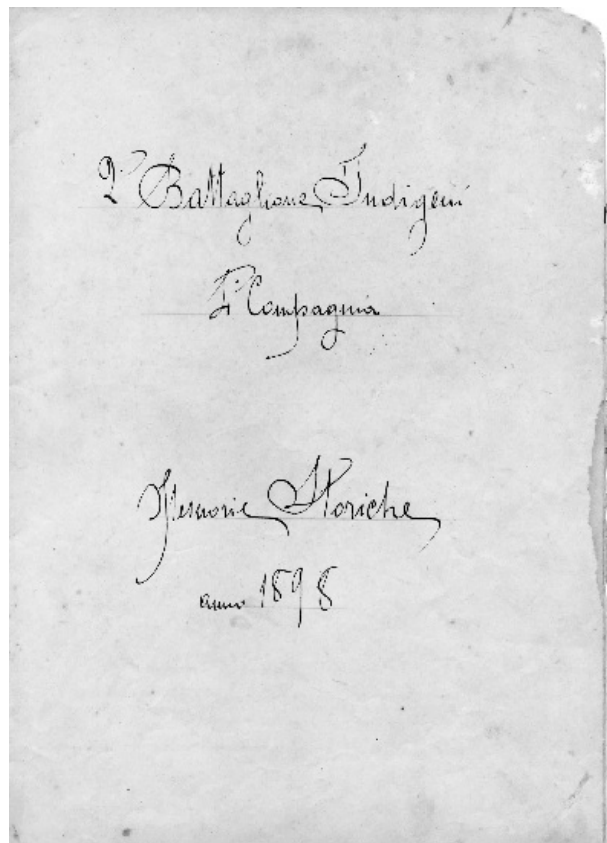 2° Battaglione Indigeni
4ª Compagnia
Memorie Storiche
anno 1898